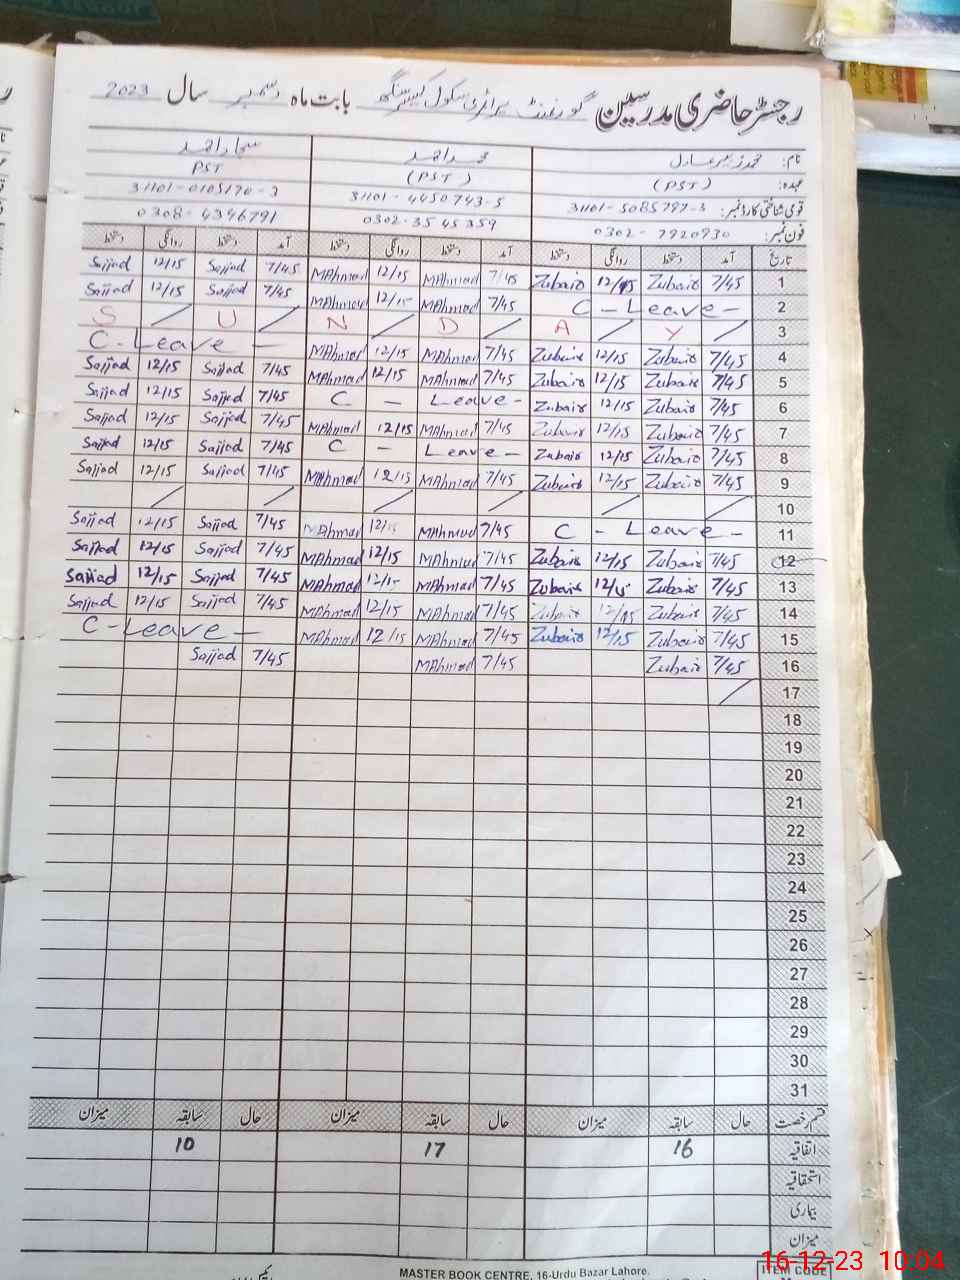 رجسٹر حاضری مدرسین گورنمنٹ پرائمری سکول بابت ماہ دسمبر سال 2023
نام: محمد زبیر عادل محمد احمد سجاد احمد
عہدہ: (PST) (PST) PST
قومی شناختی کارڈ نمبر: 31101-5085797-3 31101-4450743-5 31101-0105170-3
فون نمبر: 0302-7920930 0302-3545359 0308-4346791
تاریخ آمد دستخط روانگی دستخط آمد دستخط روانگی دستخط آمد دستخط روانگی دستخط
1 7/45 Zubair 12/15 Zubair 7/45 MAhmad 12/15 MAhmad 7/45 Sajjad 12/15 Sajjad
2 C - Leave - 7/45 MAhmad 12/15 MAhmad 7/45 Sajjad 12/15 Sajjad
3 S U N D A Y
4 7/45 Zubair 12/15 Zubair 7/45 MAhmad 12/15 MAhmad C - Leave -
5 7/45 Zubair 12/15 Zubair 7/45 MAhmad 12/15 MAhmad 7/45 Sajjad 12/15 Sajjad
6 7/45 Zubair 12/15 Zubair C - Leave - 7/45 Sajjad 12/15 Sajjad
7 7/45 Zubair 12/15 Zubair 7/45 MAhmad 12/15 MAhmad 7/45 Sajjad 12/15 Sajjad
8 7/45 Zubair 12/15 Zubair C - Leave - 7/45 Sajjad 12/15 Sajjad
9 7/45 Zubair 12/15 Zubair 7/45 MAhmad 12/15 MAhmad 7/45 Sajjad 12/15 Sajjad
10
11 C - Leave - 7/45 MAhmad 12/15 MAhmad 7/45 Sajjad 12/15 Sajjad
12 7/45 Zubair 12/15 Zubair 7/45 MAhmad 12/15 MAhmad 7/45 Sajjad 12/15 Sajjad
13 7/45 Zubair 12/15 Zubair 7/45 MAhmad 12/15 MAhmad 7/45 Sajjad 12/15 Sajjad
14 7/45 Zubair 12/15 Zubair 7/45 MAhmad 12/15 MAhmad 7/45 Sajjad 12/15 Sajjad
15 7/45 Zubair 12/15 Zubair 7/45 MAhmad 12/15 MAhmad C - Leave -
16 7/45 Zubair 7/45 MAhmad 7/45 Sajjad
17
18
19
20
21
22
23
24
25
26
27
28
29
30
31
قسم رخصت حال سابقہ میزان حال سابقہ میزان حال سابقہ میزان
اتفاقیہ 16 17 10
استحقاقیہ
بیماری
میزان
MASTER BOOK CENTRE, 16-Urdu Bazar Lahore.
ITEM CODE
16-12-23 10:04